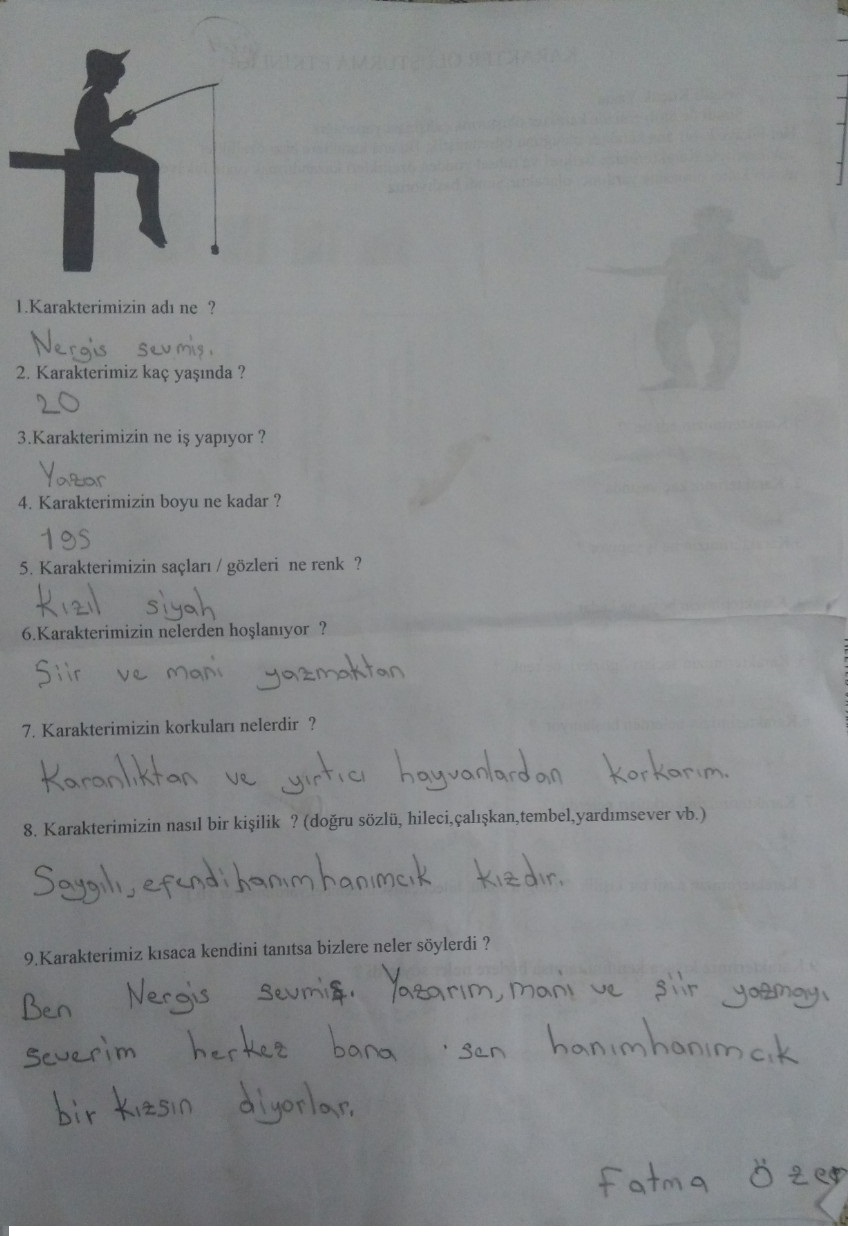 1.Karakterimizin adı ne ?
Nergis sevmiş.
2. Karakterimiz kaç yaşında ?
20
3.Karakterimizin ne iş yapıyor ?
Yazar
4. Karakterimizin boyu ne kadar ?
195
5. Karakterimizin saçları / gözleri ne renk ?
Kızıl siyah
6.Karakterimizin nelerden hoşlanıyor ?
Şiir ve mani yazmaktan
7. Karakterimizin korkuları nelerdir ?
Karanlıktan ve yırtıcı hayvanlardan korkarım.
8. Karakterimizin nasıl bir kişilik ? (doğru sözlü, hileci,çalışkan,tembel,yardımsever vb.)
Saygılı, efendi hanım hanımcık kızdır.
9.Karakterimiz kısaca kendini tanıtsa bizlere neler söylerdi ?
Ben Nergis sevmiş. Yazarım, mani ve şiir yazmayı
severim herkez bana sen hanımhanımcık
bir kızsın diyorlar.
Fatma Özer